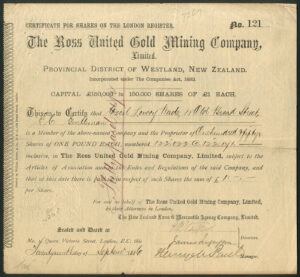 CERTIFICATE FOR SHARES ON THE LONDON REGISTER.
No. 121
The Ross United Gold Mining Company,
Limited.
PROVINCIAL DISTRICT OF WESTLAND, NEW ZEALAND.
Incorporated under The Companies Act, 1882.
CAPITAL £150,000 in 150,000 SHARES OF £1 EACH.
This is to Certify that Cecil Lowry Wade, 11 Old Broad Street,
E.C. Gentleman
is a Member of the above-named Company and the Proprietor of One hundred & fifty
Shares of ONE POUND EACH, numbered
inclusive, in The Ross United Gold Mining Company, Limited, subject to the
Articles of Association and the Rules and Regulations of the said Company, and
that at this date there is paid in respect of such Shares the sum of
For and on behalf of
The Ross United Gold Mining Company, Limited,
by their Attorneys in London,
The New Zealand Loan & Mercantile Agency Company, Limited.
Sealed and Dated at
No. 1 Queen Victoria Street, London, E.C., this
day of September 1886